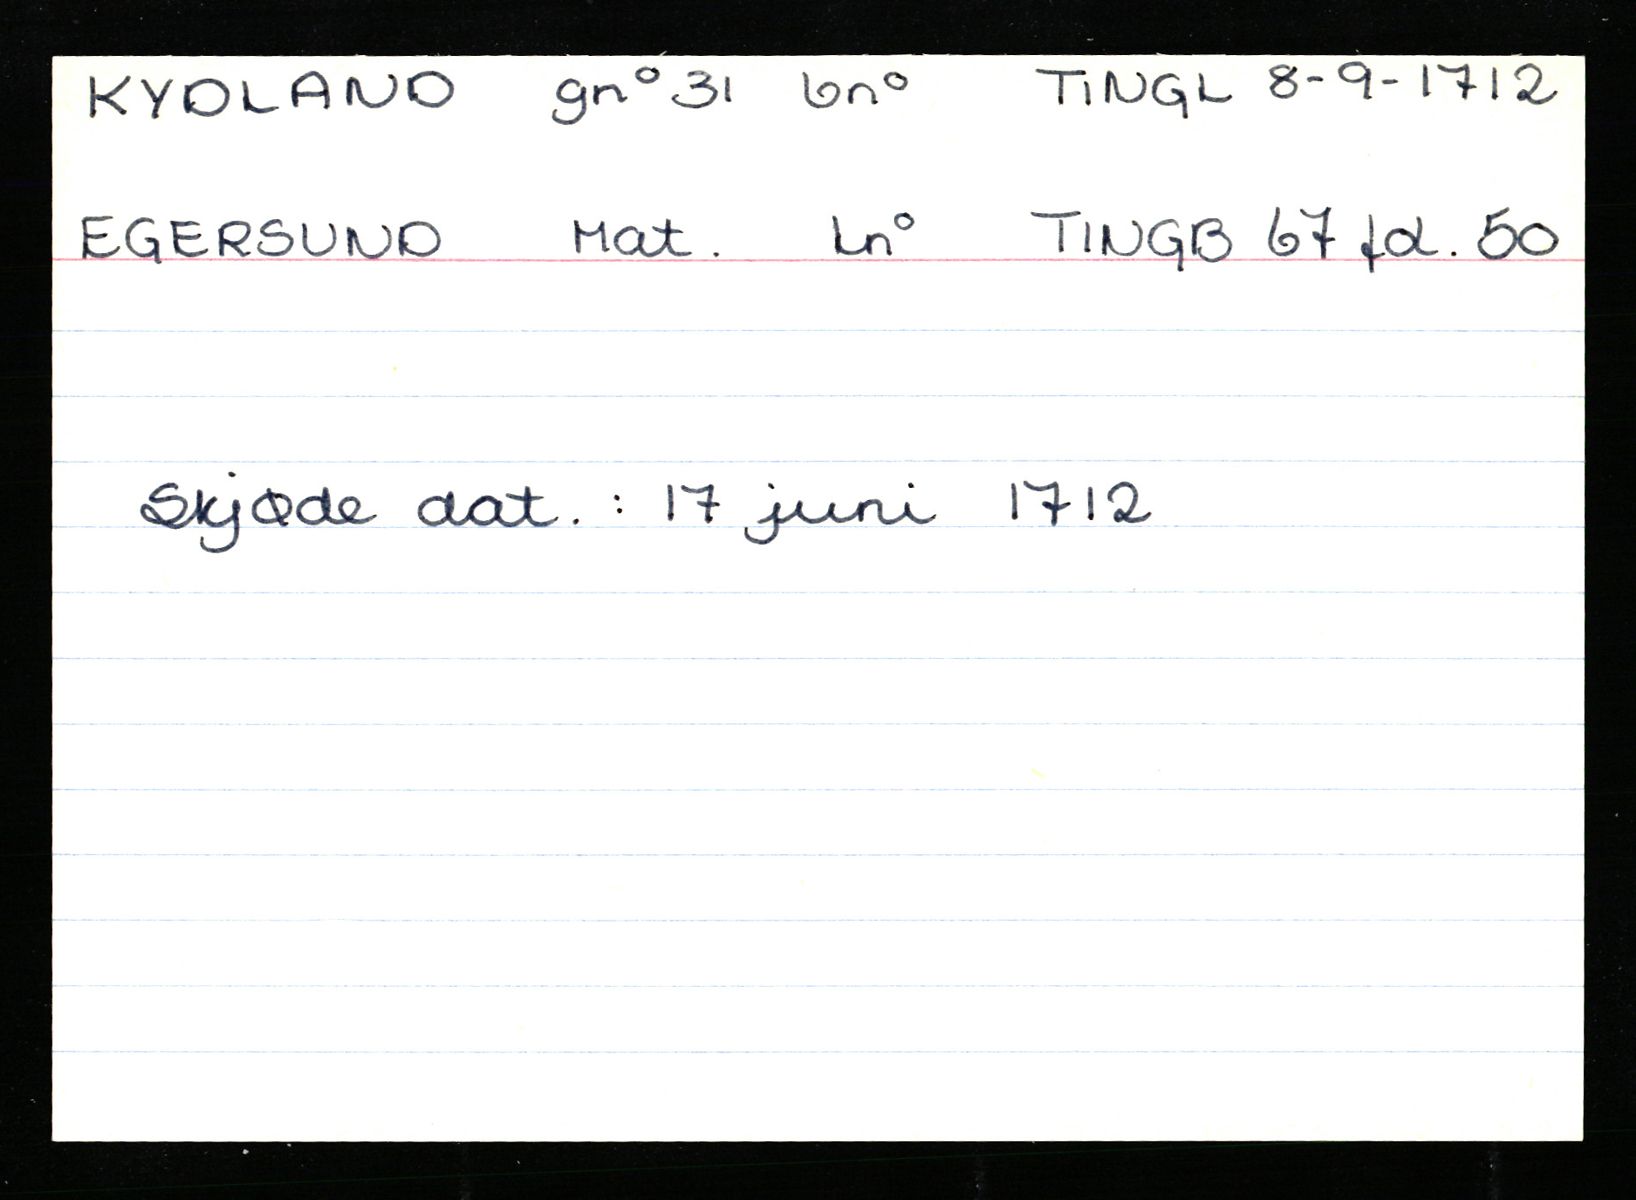 KYDLAND gn° 31 bn° TINGL 8-9-1712
EGERSUND Mat. Ln° TINGB 67 fol. 50
Skjøde dat. : 17 juni 1712